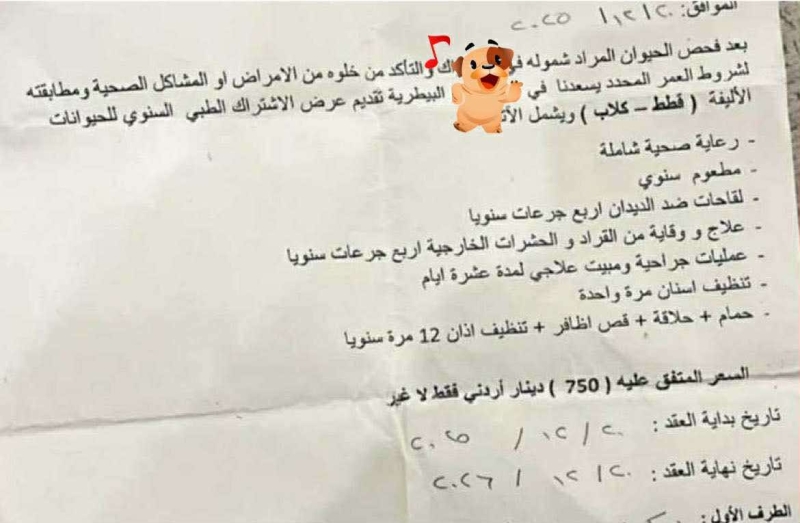 الموافق: ٢٠ / ١٢ / ٢٠٢٥
بعد فحص الحيوان المراد شموله في والتأكد من خلوه من الامراض او المشاكل الصحية ومطابقته
لشروط العمر المحدد يسعدنا في البيطرية تقديم عرض الاشتراك الطبي السنوي للحيوانات
الأليفة ( قطط – كلاب ) ويشمل
- رعاية صحية شاملة
- مطعوم سنوي
- لقاحات ضد الديدان اربع جرعات سنويا
- علاج و وقاية من القراد و الحشرات الخارجية اربع جرعات سنويا
- عمليات جراحية ومبيت علاجي لمدة عشرة ايام
- تنظيف اسنان مرة واحدة
- حمام + حلاقة + قص اظافر + تنظيف اذان 12 مرة سنويا
السعر المتفق عليه ( 750 ) دينار أردني فقط لا غير
تاريخ بداية العقد : ٢٠ / ١٢ / ٢٠٢٥
تاريخ نهاية العقد : ٢٠ / ١٢ / ٢٠٢٦
الطرف الأول :